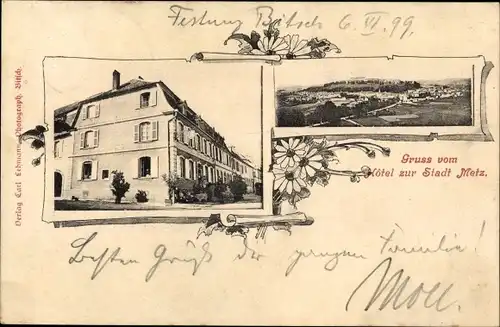 Festung Bitsch 6. VI. 99.
Verlag Carl Lehmann, Photograph. Bitsch.
Gruss vom
Hôtel zur Stadt Metz.
Besten Gruß der ganzen Familie!
Moll